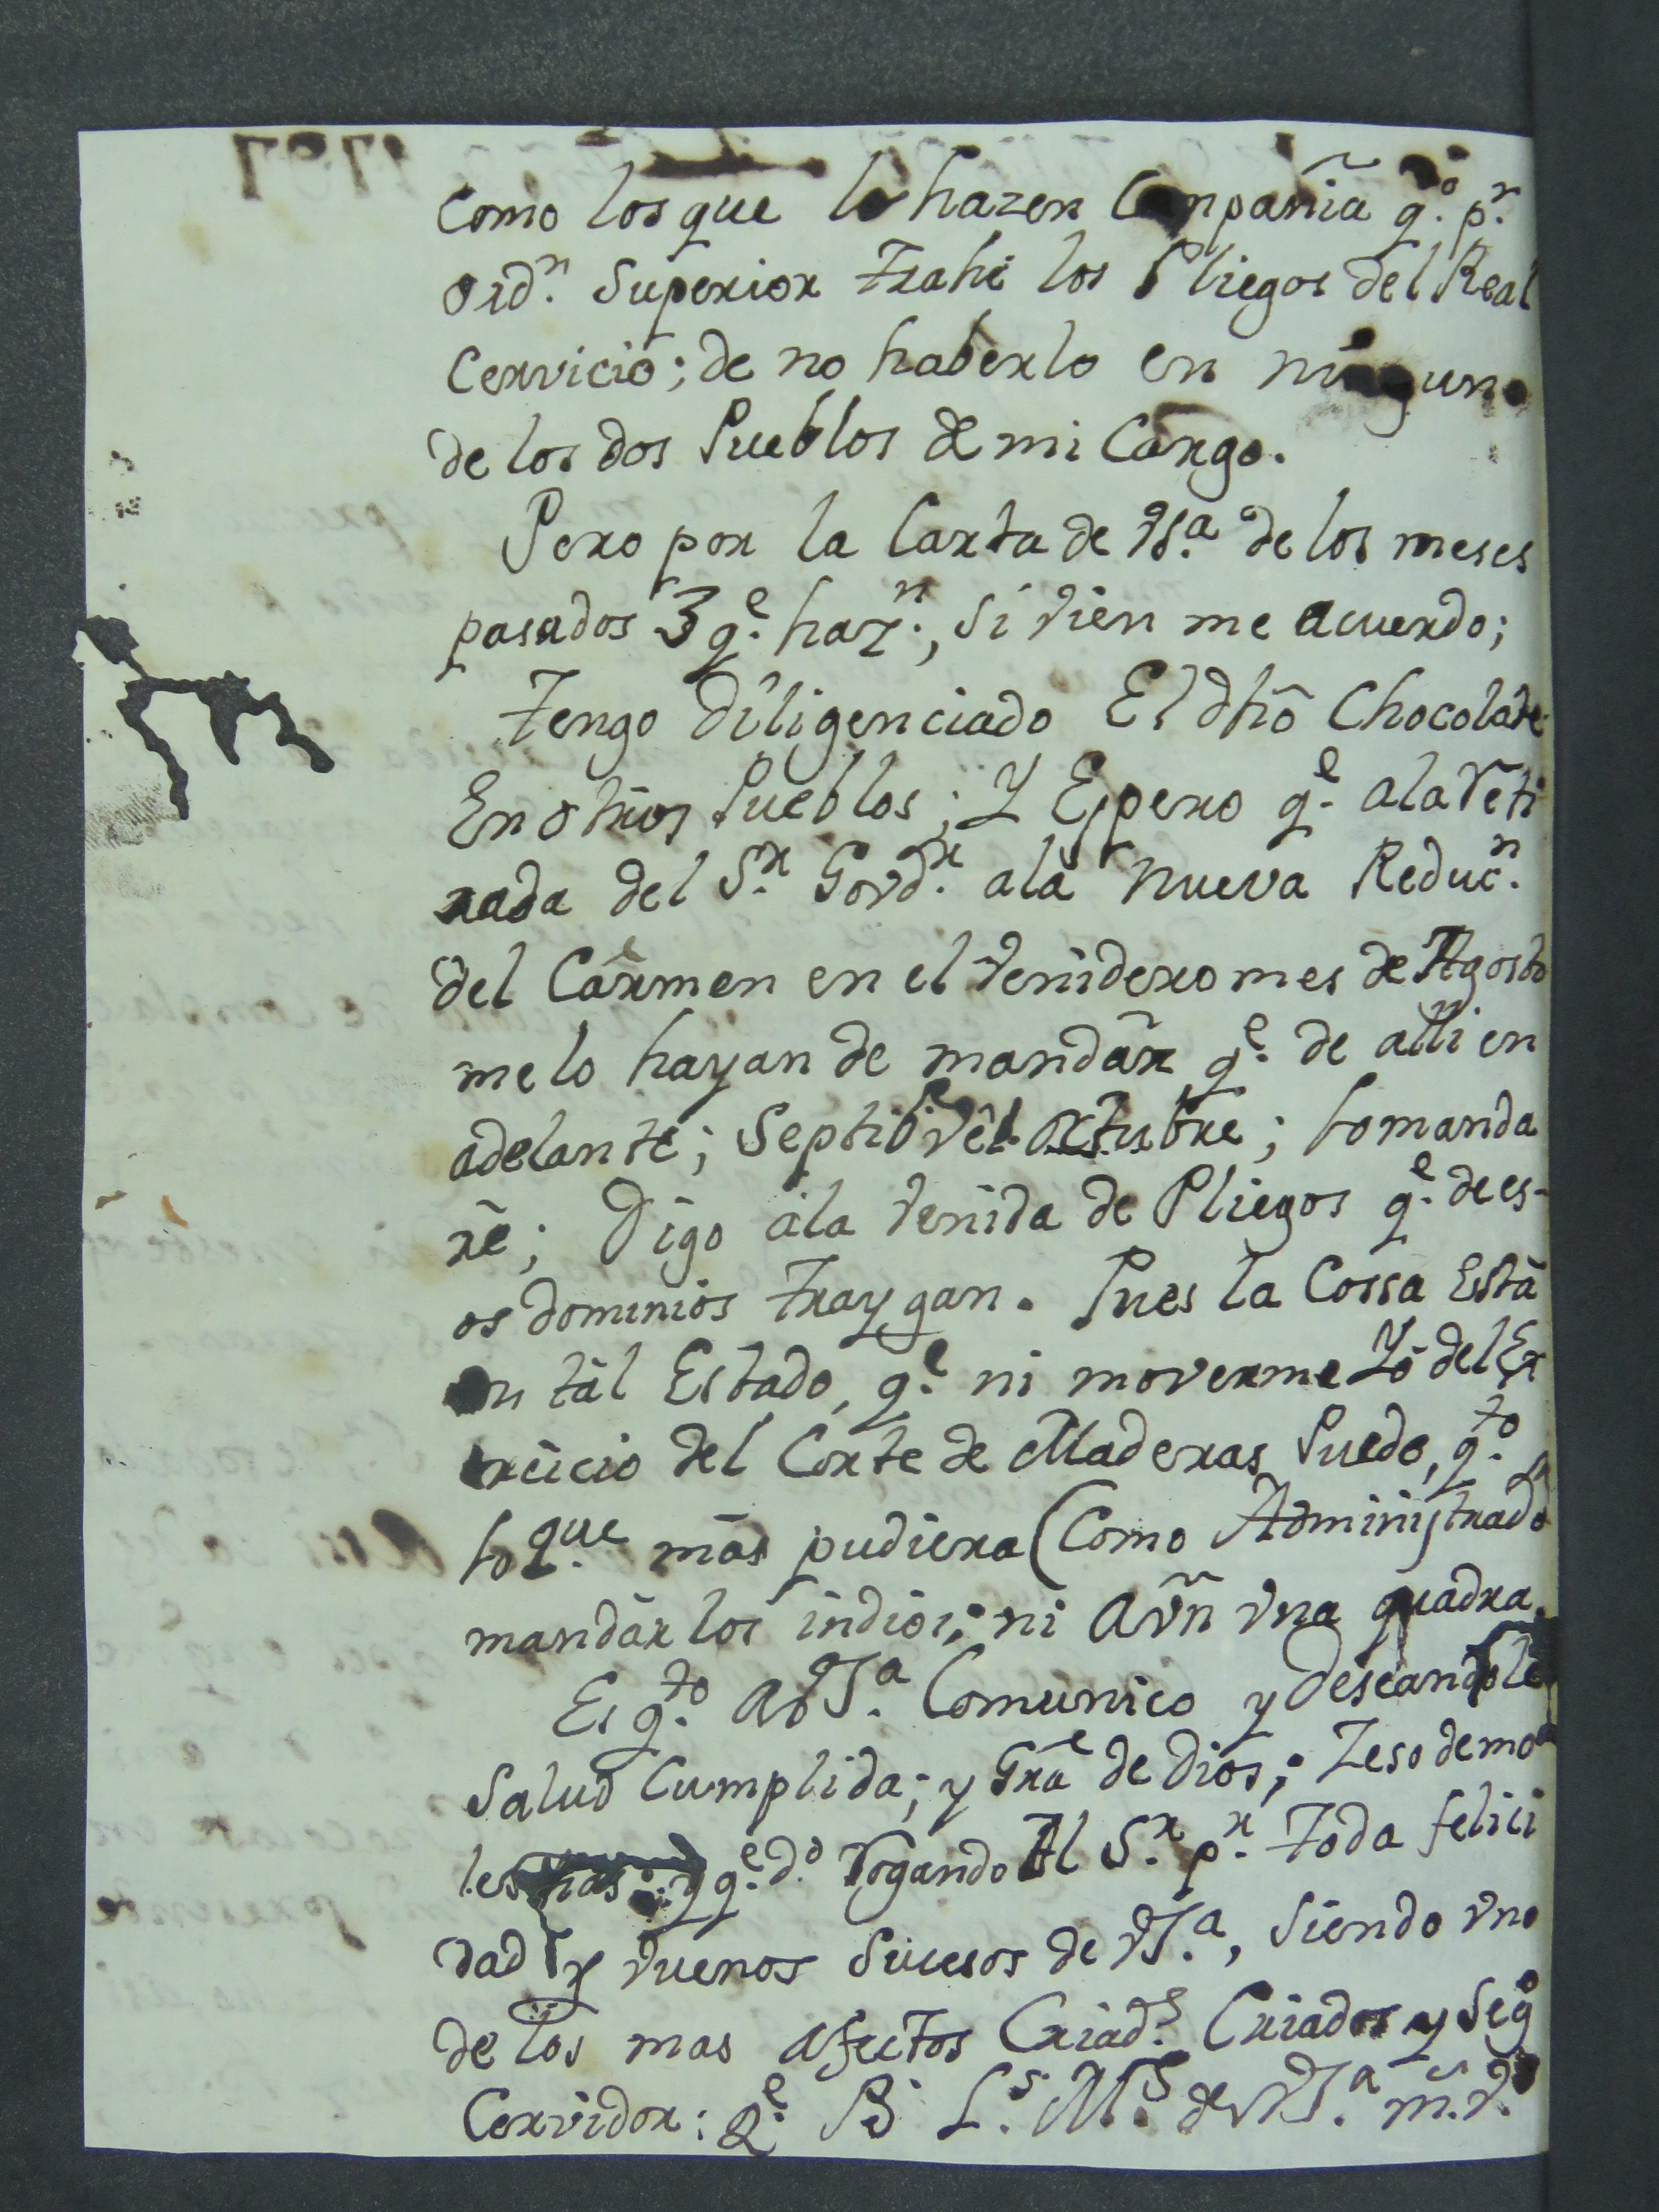 como los que le hazen Compañia q.º p.r
ord.n Superior trahe los Pliegos del Real
Cervicio; de no haberlo en ninguno
de los dos Pueblos de mi Cargo.
Pero por la Carta de VS.a de los meses
pasados 3 q.e haz.n, si vien me acuerdo;
tengo diligenciado El dhõ Chocolate
En otros Pueblos; Y Espero q.e ala Reti
rada del S.r Govd.r ala nueva Reduc.n
del Carmen en el venidero mes de Agosto
me lo hayan de mandar q.e de alli en
adelante; Septibre Octubre; lo manda
rè; Digo ala venida de Pliegos q.e de es-
os dominios traygan. Pues la Cossa Està
en tàl Estado, q.e ni moverme Yò del Ex
ercicio del Corte de Maderas Puedo, q.to
lo que màs pudiera (Como Administrado
mandàr los indios; ni aun vna quadra.
Es q.to a VS.a Comunico y deseandole
Salud Cumplida; y Gra de Dios; Zeso de mo
les q.e d.º rogando Al S.r p.r toda felici
dad y vuenos Sucesos de VS.a, siendo vno
de los mas afectos Criad.s Criados y Seg
Cervidor: Q.e B L.s M.s de VS.a m. v.
1787